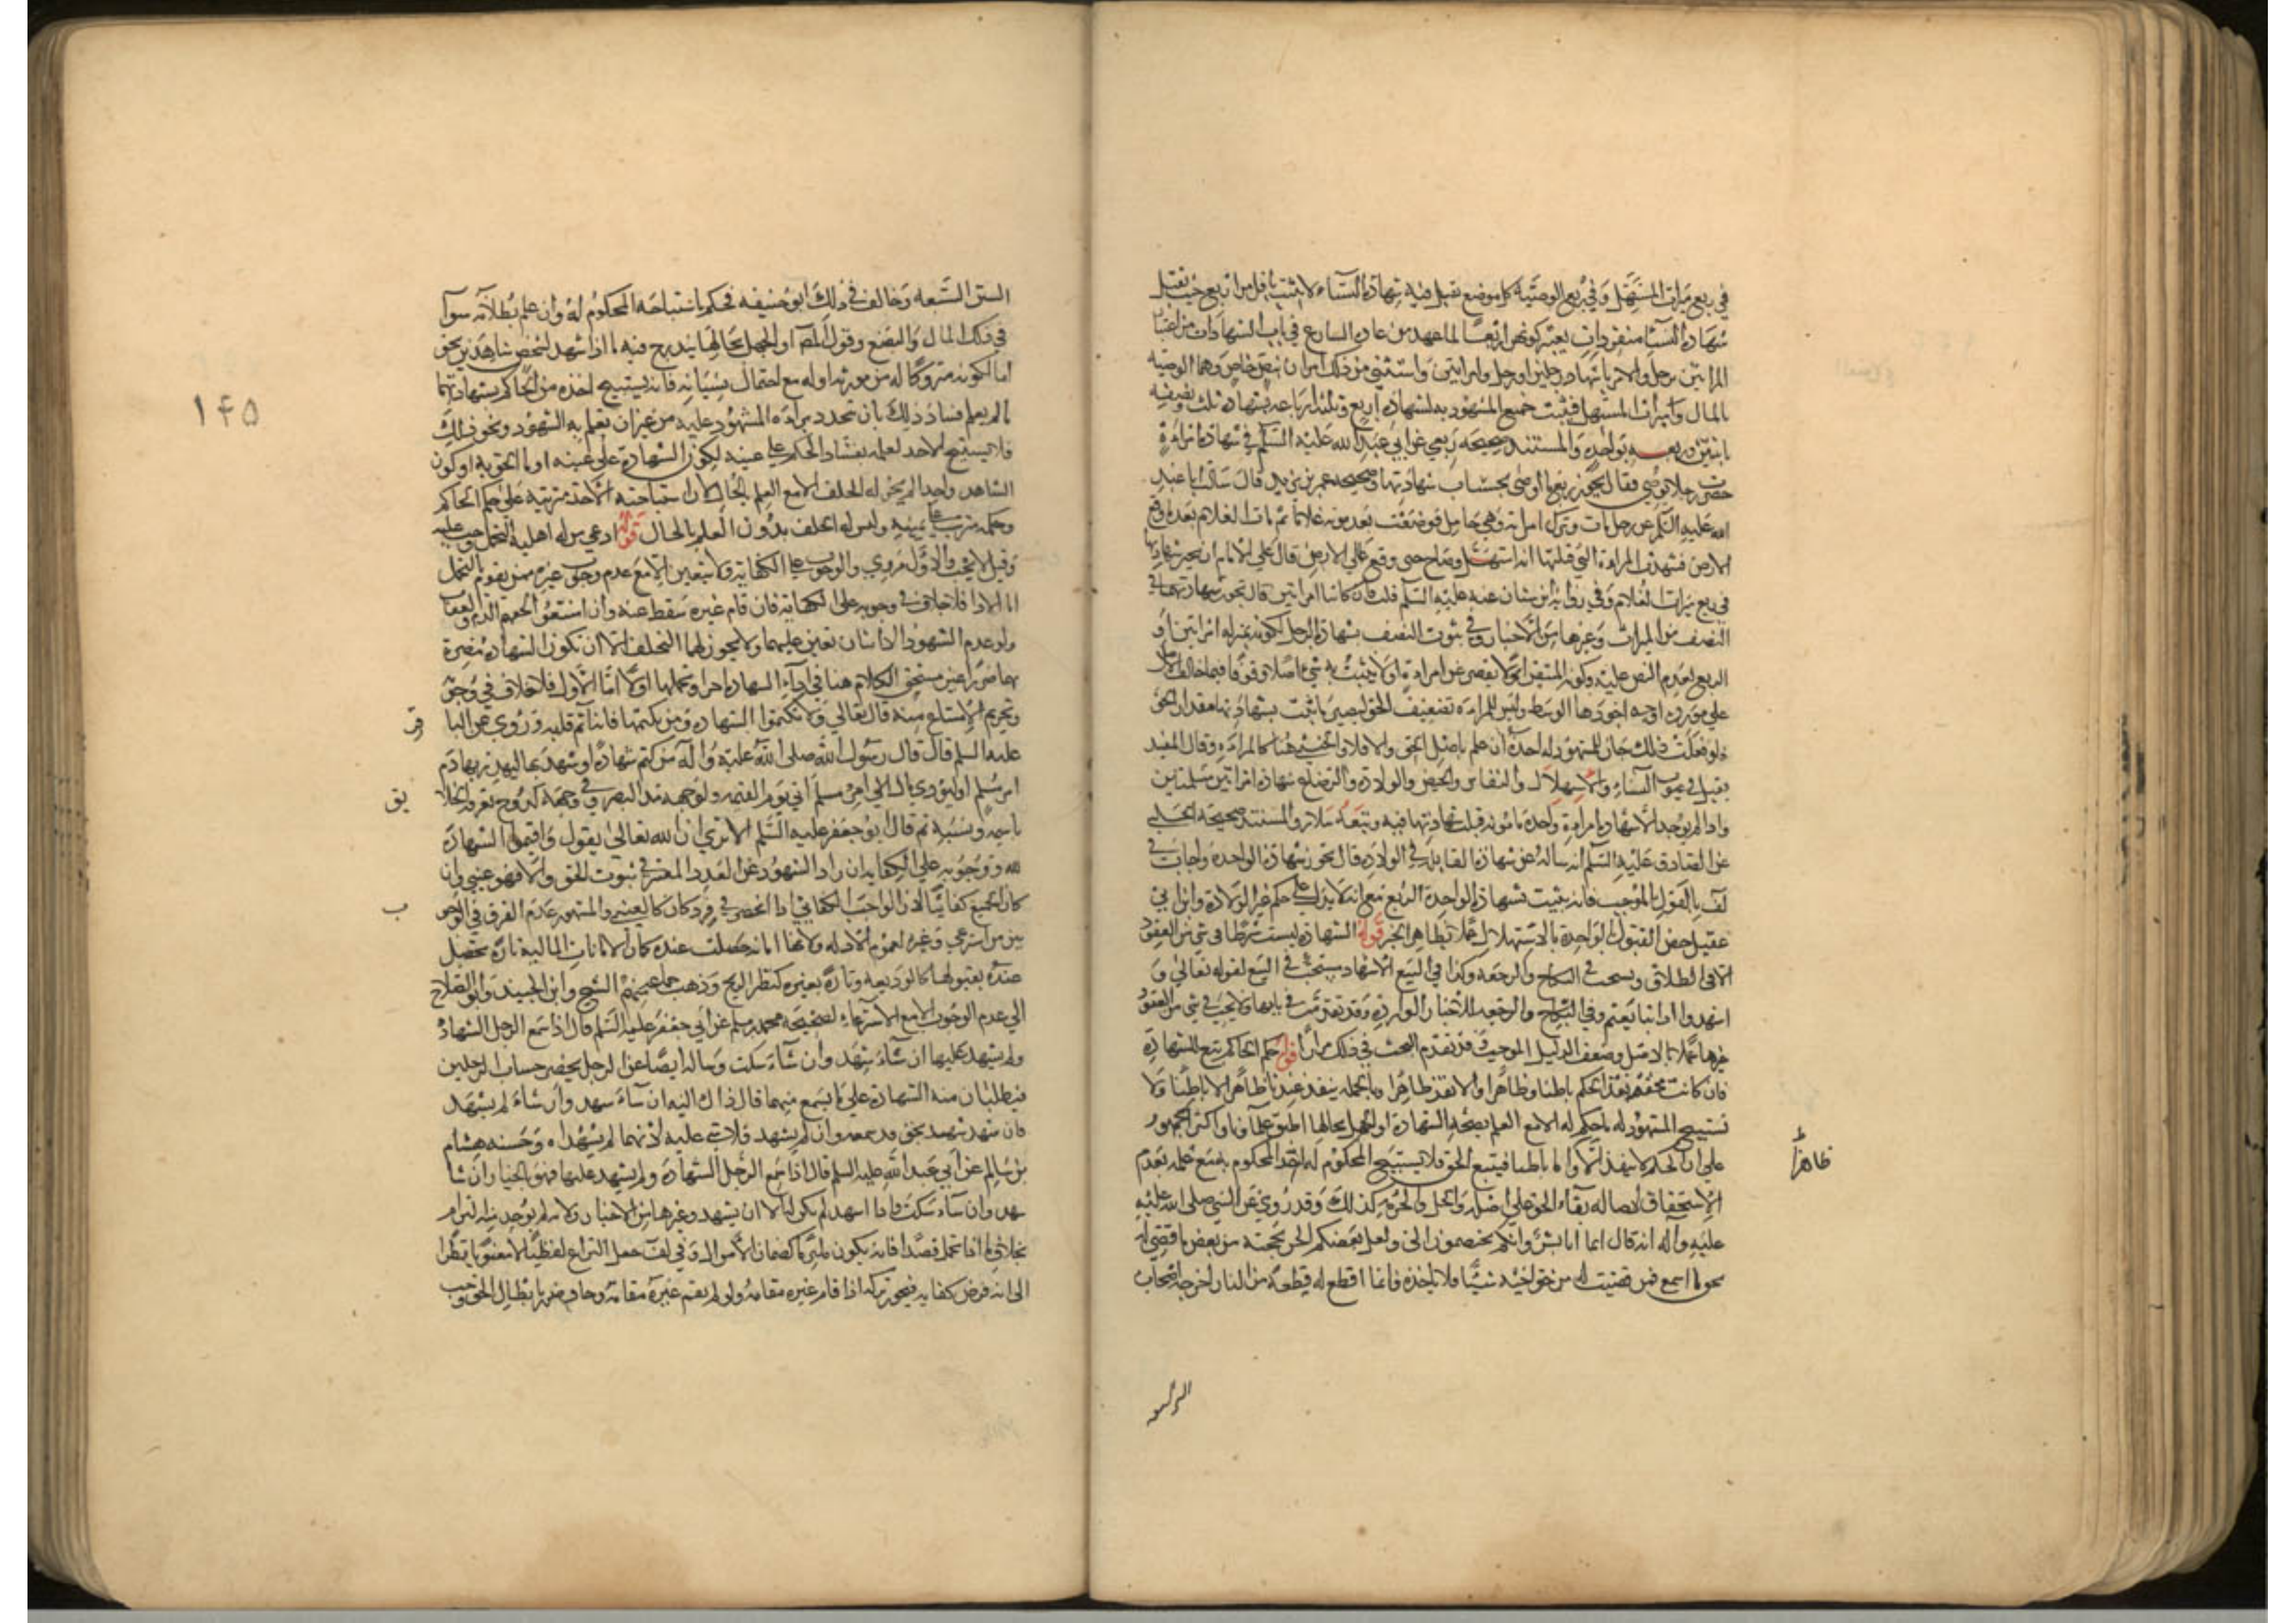 في ربع ميراث المستهل وفي ربع الوصية كل موضع تقبل فيه شهادة النساء لا يثبت باقل من اربع حيث تقبل
شهادة النساء منفردات يعتبر كونهن اربعا لما عهد من عادة الشارع في باب الشهادات من اعتبار
المراتين برجل والامر باشهاد رجلين او رجل وامراتين واستثني من ذلك امران بنص خاص وهما الوصية
بالمال وميراث المستهل فيثبت جميع المشهود به بشهادة اربع وثلثة ارباعه بشهادة ثلث ونصفه
باثنتين وربعه بواحدة والمستند صحيحة ربعي عن ابي عبد الله عليه السلم في شهادة امراة
حضرت رجلا يوصي فقال يجوز ربع ما اوصى بحساب شهادتها وصحيحة عمر بن يزيد قال سالت ابا عبد
الله عليه السلم عن رجل مات وترك امراته وهي حامل فوضعت بعد موته غلاما ثم مات الغلام بعد ما وقع
الارض فشهدت المراة التي قبلتها انه استهل وصاح حين وقع على الارض قال على الامام ان يجيز شهادتها
في ربع ميراث الغلام وفي رواية ابن سنان عنه عليه السلم قلت فان كانتا امراتين قال تجوز شهادتهما في
النصف من الميراث وغيرها من الاخبار وفي ثبوت النصف بشهادة الرجل لكونه بمنزلة امراتين او
الربع لعدم النص عليه وكونه المتيقن اذ لا يقصر عن امراة او لا يثبت به شيء اصلا وقوفا فيما خالف الاصل
على مورده اوجه اجودها الوسط وليس للمراة تضعيف الحق ليصير ما ثبت بشهادتها مقدار الحق
فلو فعلت ذلك جاز للمشهود له اخذه ان علم باصل الحق والا فلا والخنثى هنا كالمراة وقال المفيد
يقبل في عيوب النساء والاستهلال والنفاس والحيض والولادة والرضاع شهادة امراتين مسلمتين
واذا لم يوجد الا شهادة امراة واحدة مامونة قبلت شهادتها فيه وتبعه سلار والمستند صحيحة الحلبي
عن الصادق عليه السلم انه ساله عن شهادة القابلة في الولادة قال تجوز شهادة الواحدة واجاب في
لف بالقول بالموجب فانه يثبت بشهادة الواحدة الربع مع انه لا يدل على حكم غير الولادة وابن ابي
عقيل خص القبول الواحدة بالاستهلال عملا بظاهر الخبر قوله الشهادة ليست شرطا في شيء من العقود
الا في الطلاق ويستحب في النكاح والرجعة وكذا في البيع الاشهاد يستحب في البيع لقوله تعالى و
اشهدوا اذا تبايعتم وفي النكاح والرجعة للاخبار الواردة وقد تقدمت في بابها ولا يجب في شيء من العقود
غيرها عملا بالاصل وضعف الدليل الموجب وقد تقدم البحث في ذلك مرارا قوله حكم الحاكم تبع للشهادة
فان كانت محققة نفذ الحكم باطنا وظاهرا والا نفذ ظاهرا وبالجملة ينفذ عندنا ظاهرا لا باطنا ولا
يستبيح المشهود له ما حكم له الا مع العلم بصحة الشهادة او الجهل بحالها اطبق علماؤنا واكثر الجمهور
على ان الحكم لا ينفذ الا ولما باطنا فيتبع الحق فلا يستبيح المحكوم له اخذ المحكوم به مع علمه بعدم
الاستحقاق لاصالة بقاء الحق على اصله والحل والحرمة كذلك وقد روي عن النبي صلى الله عليه
عليه وآله انه قال انما انا بشر وانكم تختصمون الي ولعل بعضكم الحن بحجته من بعض فاقضي له
نحو ما اسمع فمن قضيت له من حق اخيه شيئا فلا ياخذه فانما اقطع له قطعة من النار اخرجه اصحاب
ظاهرا
١٤٥
السنن التسعة وخالف في ذلك ابو حنيفة فحكم باستباحة المحكوم له وان علم بطلانه سواء
في ذلك المال والبضع وقول المص او الجهل بحالها يندرج فيه ما اذا شهد لشخص شاهدين بحق
اما لكونه متروكا له من مورثه او له مع احتمال نسيانه فانه يستبيح اخذه من الحاكم بشهادتهما
ما لم يعلم فساد ذلك بان تجدد براءة المشهود عليه من غير ان تعلم به الشهود ونحو ذلك
فلا يستبيح الاخذ لعلمه بفساد الحكم على عينه لكون الشهادة على عينه او ما الحق به او كون
الشاهد واحدا لم يجز له الحلف الا مع العلم بالحال لان استباحته الاخذ مترتبة على حكم الحاكم
وحكمه مترتب على يمينه وليس له الحلف بدون العلم بالحال قوله اذا دعي من له اهلية التحمل وجب عليه
وقيل لا يجب والاول مروي والوجوب على الكفاية ولا يتعين الا مع عدم وجوب غيره ممن يقوم بالتحمل
اما الاداء فلا خلاف في وجوبه على الكفاية فان قام غيره سقط عنه وان امتنعوا لحقهم الذم والعقاب
ولو عدم الشهود الا اثنان تعين عليهما ولا يجوز لهما التخلف الا ان تكون الشهادة مضرة
بهما ضررا غير مستحق الكلام هنا في اداء الشهادة اخرا وتحملها اولا اما الاول فلا خلاف في وجوبه
وتحريم الامتناع منه قال تعالى ولا تكتموا الشهادة ومن يكتمها فانه آثم قلبه وروي عن الباقر
عليه السلم قال قال رسول الله صلى الله عليه وآله من كتم شهادة او شهد بها ليهدر بها دم
امرء مسلم او ليزوي مال امرئ مسلم اتى يوم القيمة ولوجهه مد البصر وفي وجهه كدوح تعرفه الخلايق
باسمه ونسبه ثم قال ابو جعفر عليه السلم الا ترى ان الله تعالى يقول واقيموا الشهادة
لله ووجوبه على الكفاية ان زاد الشهود عن العدد المعتبر في ثبوت الحق والا فهو عيني وان
كان الجميع كفائيا لان الواجب الكفائي اذا انحصر في فرد كان كالعيني والمشهور عدم الفرق في الوجوب
بين من استرعي وغيره لعموم الادلة ولانها امانة حصلت عنده كما ان الامانات المالية تارة تحصل
عنده بقبولها كالوديعة وتارة بغيره كتطير الريح وذهب جماعة منهم الشيخ وابن الجنيد وابو الصلاح
الى عدم الوجوب الا مع الاسترعاء لصحيحة محمد بن مسلم عن ابي جعفر عليه السلم قال اذا سمع الرجل الشهادة
ولم يشهد عليها ان شاء شهد وان شاء سكت وساله ايضا عن الرجل يحضر حساب الرجلين
فيطلبان منه الشهادة على ما يسمع منهما قال ذاك اليه ان شاء شهد وان شاء لم يشهد
فان شهد شهد بحق قد سمعه وان لم يشهد فلا شيء عليه لانهما لم يشهداه وحسنة هشام
بن سالم عن ابي عبد الله عليه السلم قال اذا سمع الرجل الشهادة ولم يشهد عليها فهو بالخيار ان شاء
شهد وان شاء سكت واذا اشهد لم يكن له الا ان يشهد وغيرها من الاخبار ولانه لم يوجد منه التزام
بخلاف ما اذا تحمل قصدا فانه يكون ملتزما كضمان الاموال وفي لف جعل النزاع لفظيا لا معنويا نظرا
الى انه فرض كفاية فيجوز تركه اذا قام غيره مقامه ولو لم يقم غيره مقامه وخاف ضرر بابطال الحق وجب